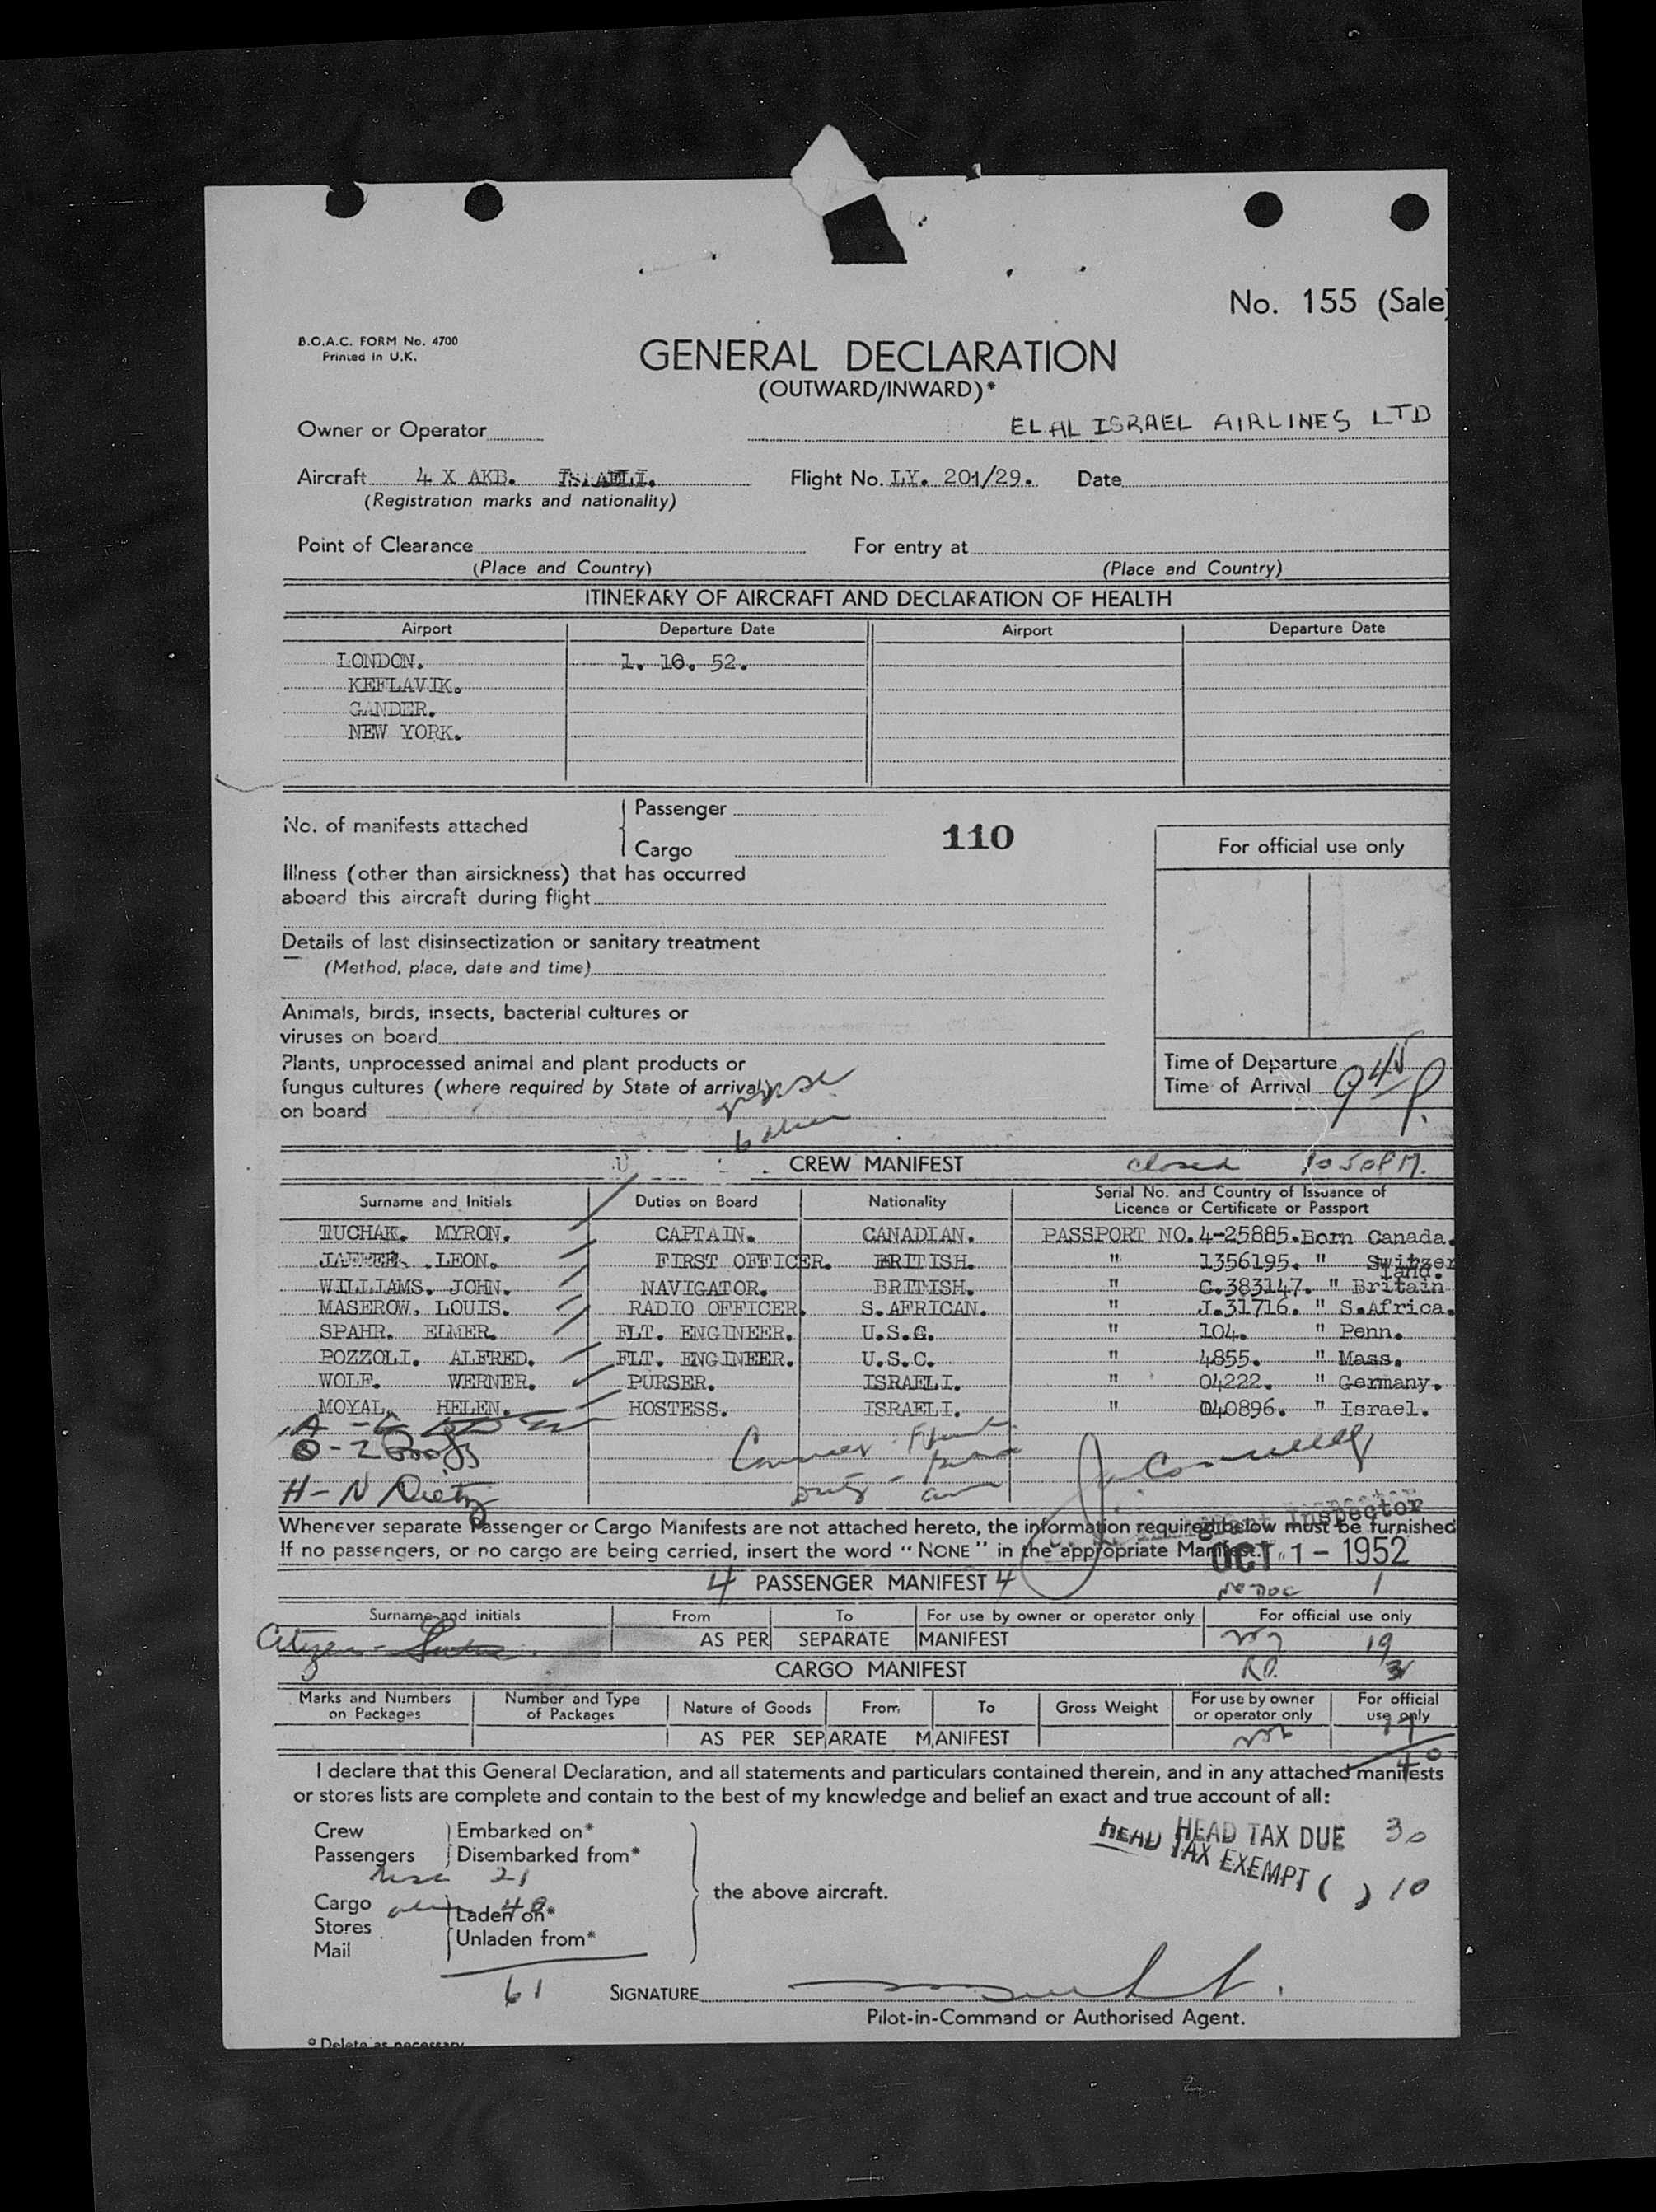 No. 155 (Sale)
B.O.A.C. FORM No. 4700
Printed in U.K.
GENERAL DECLARATION
(OUTWARD/INWARD)*
Owner or Operator EL AL ISRAEL AIRLINES LTD
Aircraft 4 X AKB. ISRAELI. Flight No. LY. 201/29. Date
(Registration marks and nationality)
Point of Clearance For entry at
(Place and Country) (Place and Country)
ITINERARY OF AIRCRAFT AND DECLARATION OF HEALTH
Airport Departure Date Airport Departure Date
LONDON. 1. 10. 52.
KEFLAVIK.
GANDER.
NEW YORK.
No. of manifests attached Passenger
Cargo 110
For official use only
Illness (other than airsickness) that has occurred
aboard this aircraft during flight
Details of last disinsectization or sanitary treatment
(Method, place, date and time)
Animals, birds, insects, bacterial cultures or
viruses on board
Plants, unprocessed animal and plant products or
fungus cultures (where required by State of arrival)
on board
Time of Departure
Time of Arrival 945 P.
CREW MANIFEST closed 1050 PM.
Surname and Initials Duties on Board Nationality Serial No. and Country of Issuance of
Licence or Certificate or Passport
TUCHAK. MYRON. CAPTAIN. CANADIAN. PASSPORT NO. 4-25885. Born Canada.
LEON. FIRST OFFICER. BRITISH. " 1356195. " Switzerland.
WILLIAMS. JOHN. NAVIGATOR. BRITISH. " C.383147. " Britain
MASEROW. LOUIS. RADIO OFFICER. S.AFRICAN. " J.31716. " S.Africa.
SPAHR. ELMER. FLT. ENGINEER. U.S.C. " 104. " Penn.
POZZOLI. ALFRED. FLT. ENGINEER. U.S.C. " 4855. " Mass.
WOLF. WERNER. PURSER. ISRAELI. " 04222. " Germany.
MOYAL. HELEN. HOSTESS. ISRAELI. " 040896. " Israel.
H - N Dietz
Inspector
Whenever separate Passenger or Cargo Manifests are not attached hereto, the information required below must be furnished
If no passengers, or no cargo are being carried, insert the word "NONE" in the appropriate Manifest.
OCT 1 - 1952
4 PASSENGER MANIFEST 4 no Doc 1
Surname and initials From To For use by owner or operator only For official use only
AS PER SEPARATE MANIFEST 19
CARGO MANIFEST
Marks and Numbers on Packages Number and Type of Packages Nature of Goods From To Gross Weight For use by owner or operator only For official use only
AS PER SEPARATE MANIFEST
40
I declare that this General Declaration, and all statements and particulars contained therein, and in any attached manifests
or stores lists are complete and contain to the best of my knowledge and belief an exact and true account of all:
Crew Embarked on*
Passengers Disembarked from*
21
Cargo Laden on*
Stores
Mail Unladen from*
the above aircraft.
HEAD TAX DUE 30
HEAD TAX EXEMPT ( ) 10
61
SIGNATURE
Pilot-in-Command or Authorised Agent.
* Delete as necessary